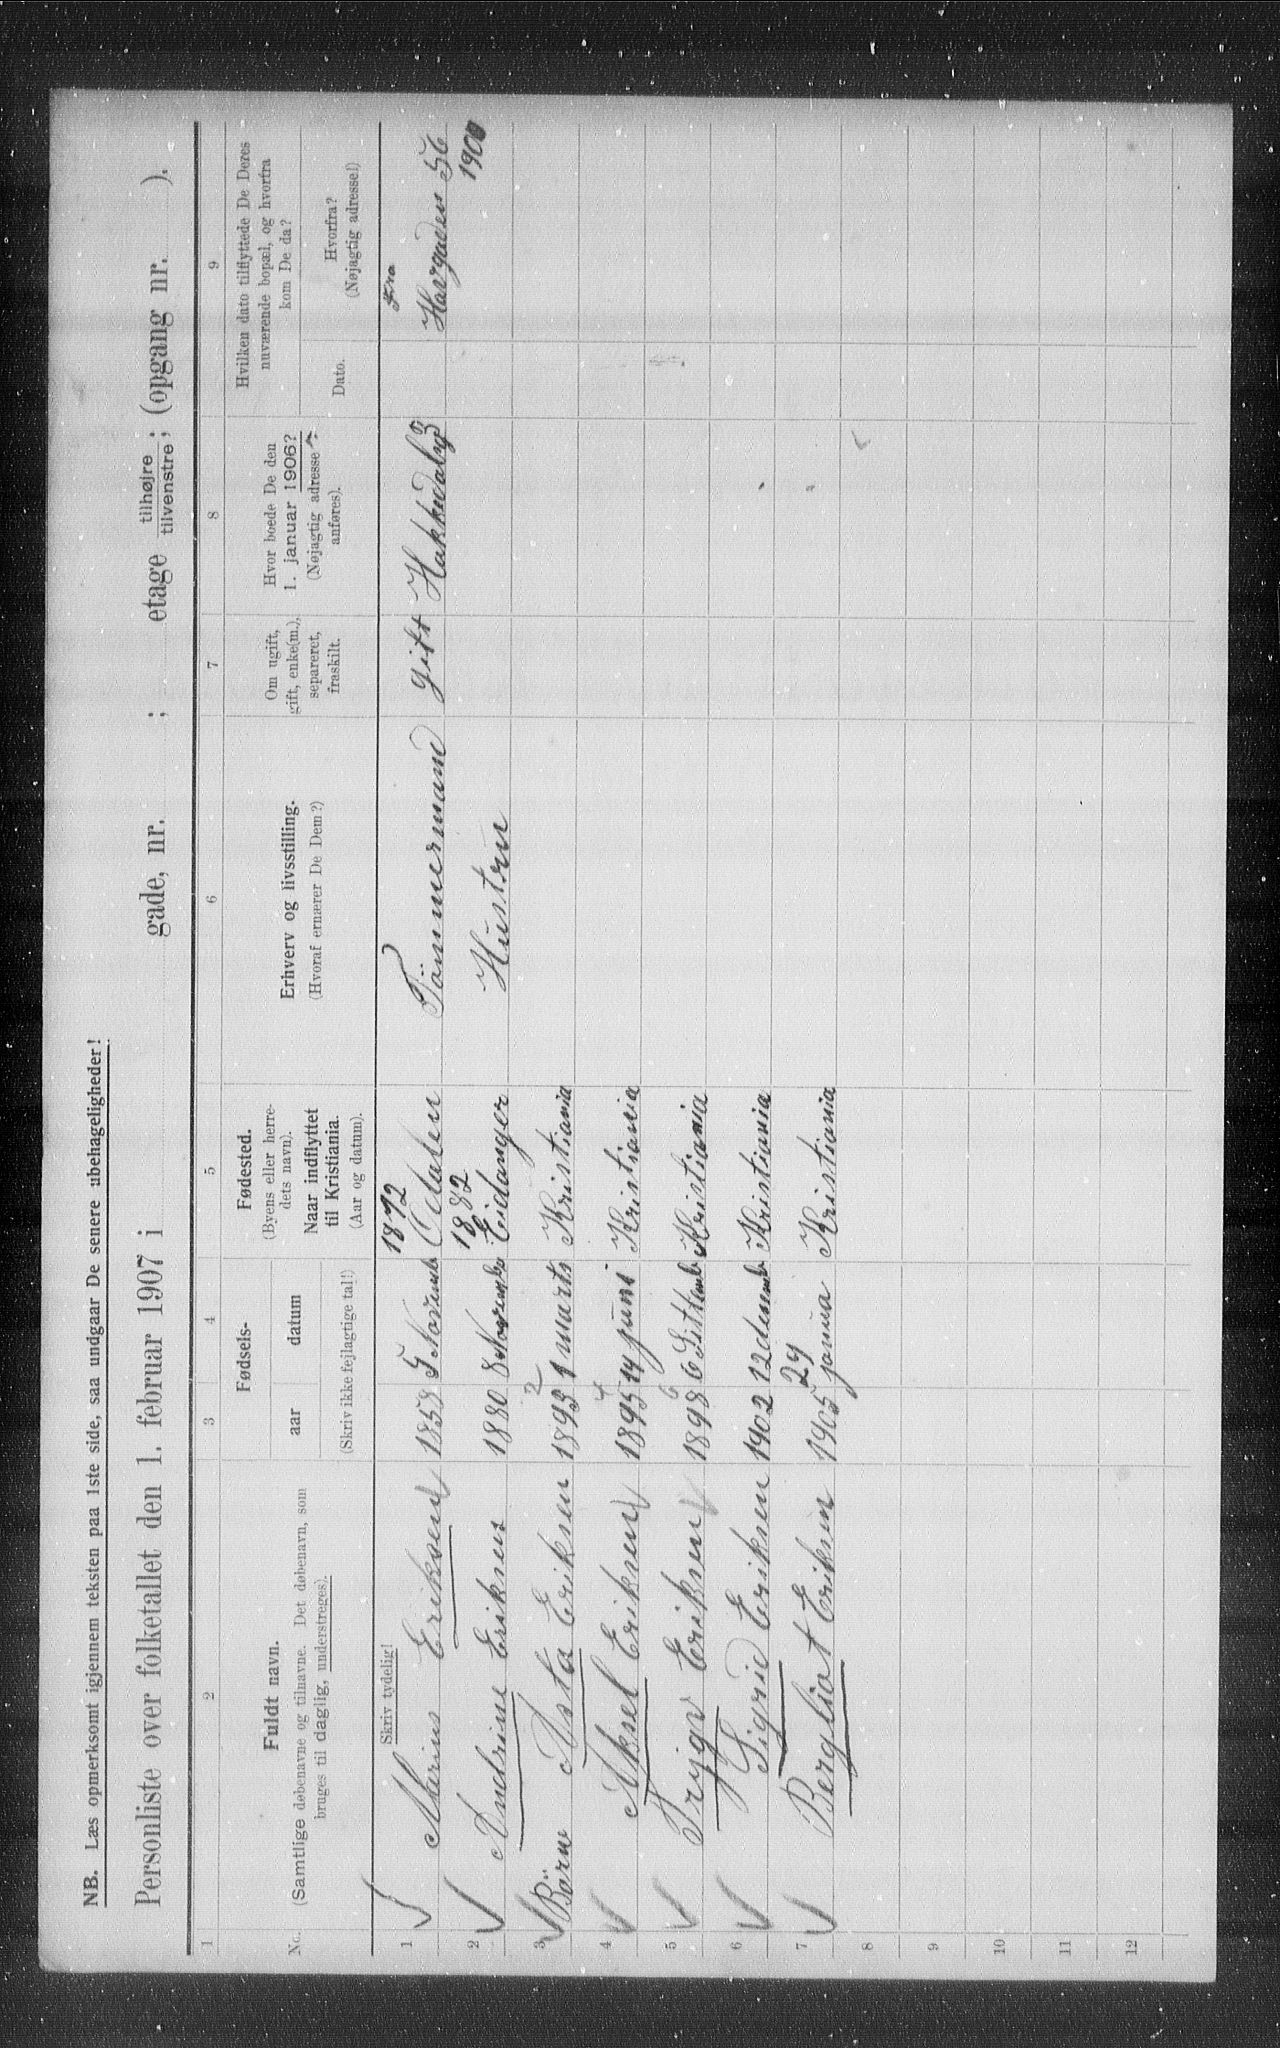 NB. Læs opmerksomt igjennem teksten paa 1ste side, saa undgaar De senere ubehageligheder!
Personliste over folketallet den 1. februar 1907 i gade, nr. ; etage tilhøjre / tilvenstre; (opgang nr. ).
1 2 3 4 5 6 7 8 9
No.
Fuldt navn.
(Samtlige døbenavne og tilnavne. Det døbenavn, som
bruges til daglig, understreges).
Fødsels-
aar datum
(Skriv ikke fejlagtige tal!)
Fødested.
(Byens eller herre-
dets navn).
Naar indflyttet
til Kristiania.
(Aar og datum).
Erhverv og livsstilling.
(Hvoraf ernærer De Dem?)
Om ugift,
gift, enke(m.),
separeret,
fraskilt.
Hvor boede De den
1. januar 1906?
(Nøjagtig adresse
anføres).
Hvilken dato tilflyttede De Deres
nuværende bopæl, og hvorfra
kom De da?
Dato.
Hvorfra?
(Nøjagtig adresse!)
Skriv tydelig!
1872 Fra
1 Marius Eriksen 1858 5 Novemb Odalen Tömmermand gift Hakkedalvg 3
1882
2 Andrine Eriksen 1880 8 Novemb Eidanger Hüstrü 1900
3 Börne Asta Eriksen 1893 1 marts Kristiania
4 Aksel Eriksen 1895 14 juni Kristiania
5 Trygv Eriksen 1898 6 Kristiania
6 Sigrid Eriksen 1902 12 desemb Kristiania
29
7 Bergliot Eriksen 1905 janua Kristiania
8
9
10
11
12